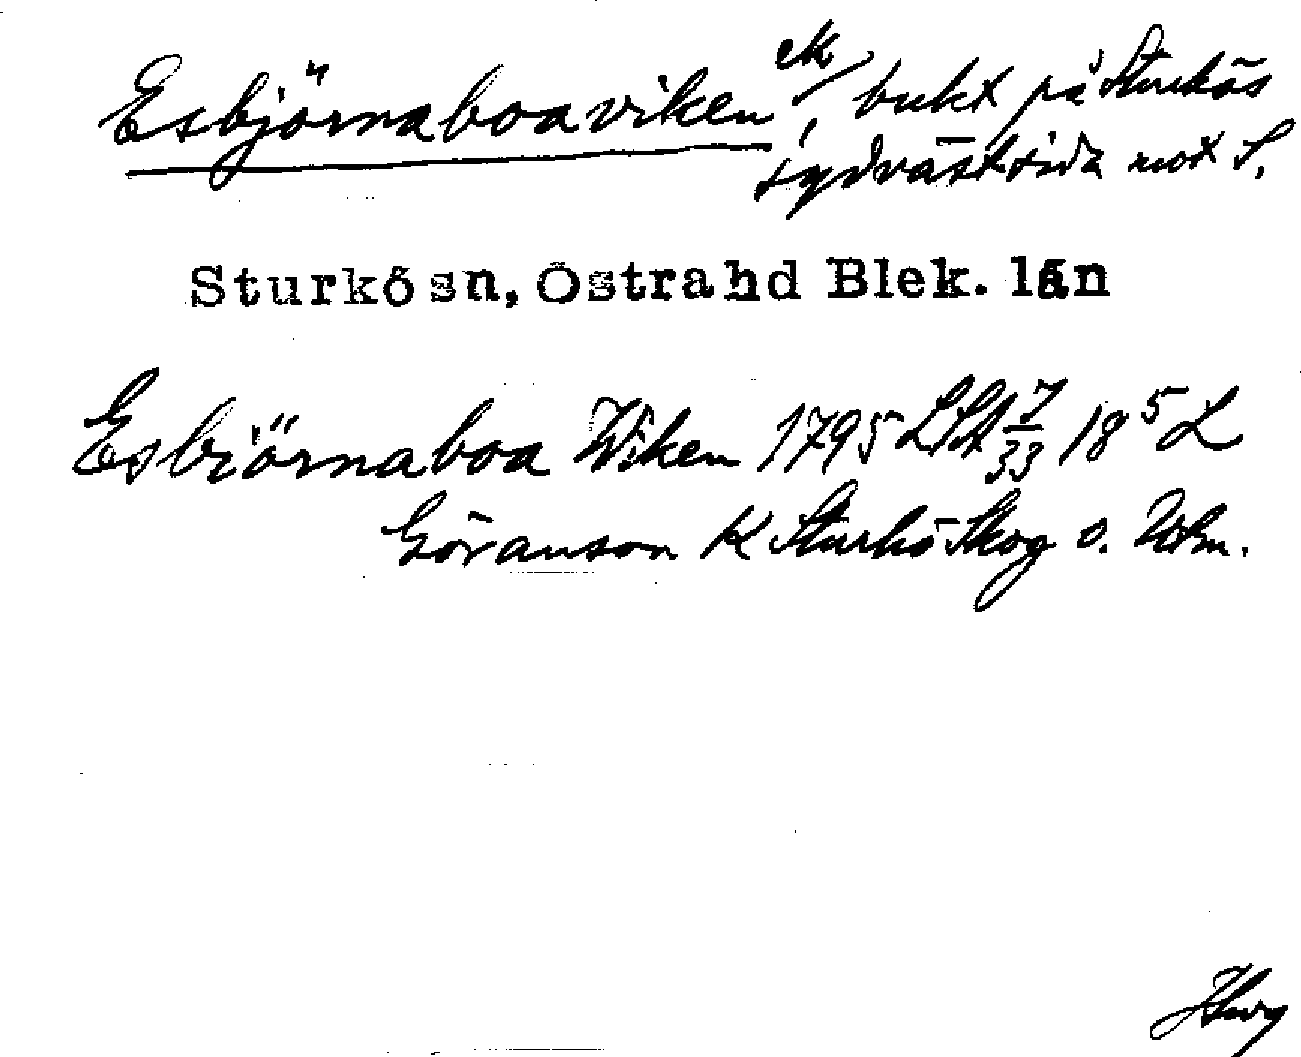 Esbjörnaboaviken ek, bukt på Sturkös
sydvästsida mot S.
Sturkö sn, Östra hd Blek. län
Esbiörnaboa Wiken 1795 LSA 7/33 18 5 L
Göranson K Sturkö Skog o.